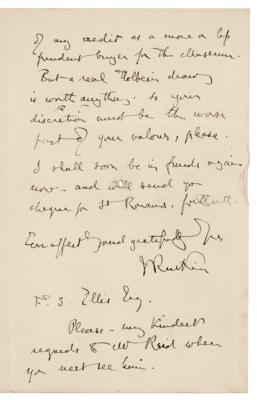 of my credit as a more or less
prudent buyer for the Museum.
But a real Holbein drawg
is worth anything, so your
discretion must be the worse
part of your valour, please.
I shall soon be in funds again
now - and will send you
cheque for St Ronans, forthwith.
Ever affectly and gratefully Yrs
JRuskin
F. S. Ellis Esq.
Please - my kindest
regards to Mr Reid when
you next see him.